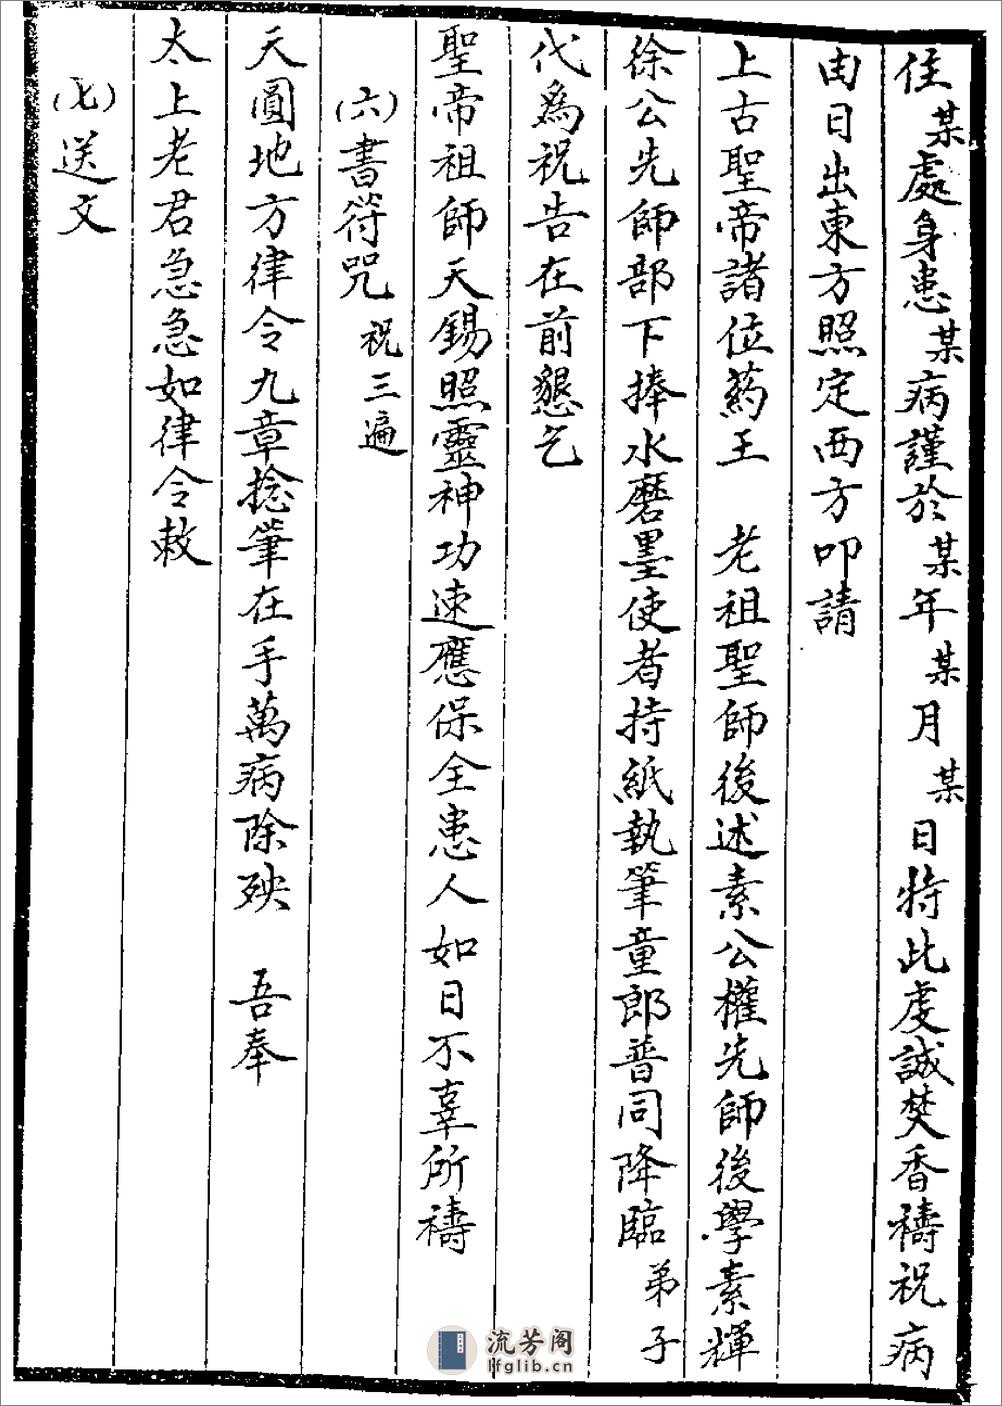 住某處身患某病謹於某年某月某日特此虔誠焚香禱祝病
由日出東方照定西方叩請
上古聖帝諸位葯王　老祖聖師後述素公權先師後學素輝
徐公先師部下捧水磨墨使者持紙執筆童郎普同降臨弟子
代為祝告在前懇乞
聖帝祖師天錫照靈神功速應保全患人如日不辜所禱
(六)書符咒　祝三遍
天圓地方律令九章捻筆在手萬病除殃　吾奉
太上老君急急如律令敕
(七)送文
流芳阁
lfglib.cn